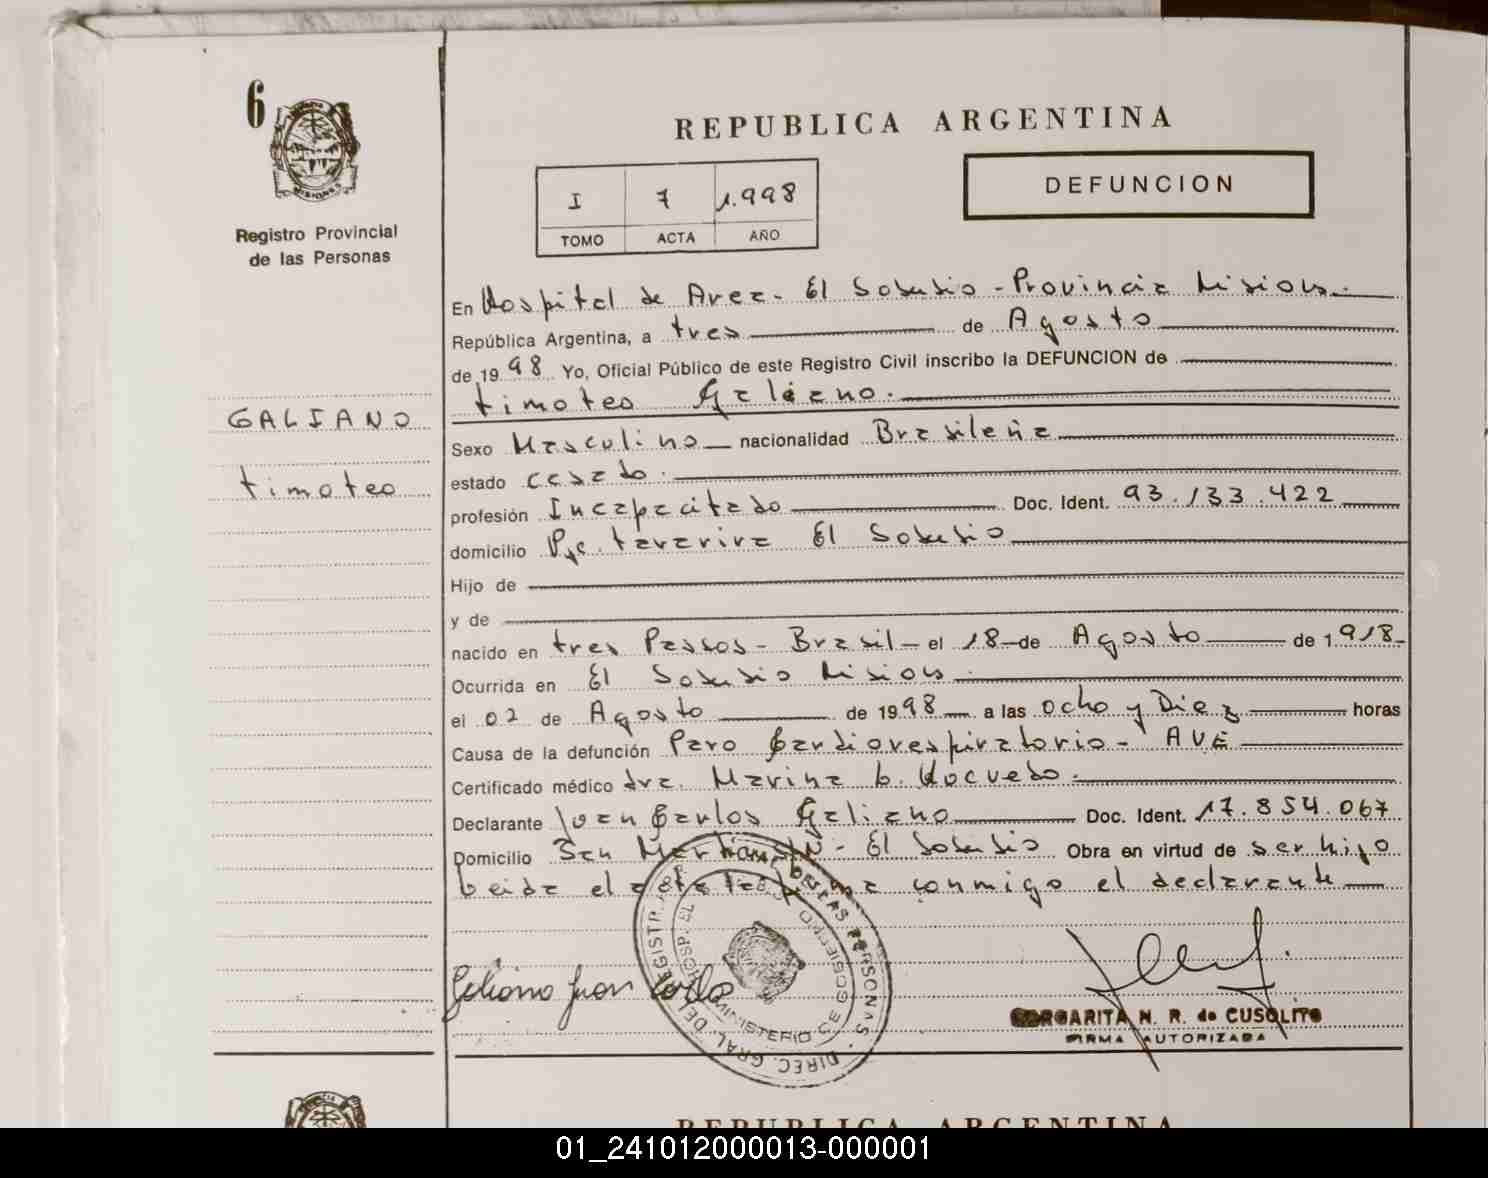 6
REPUBLICA ARGENTINA
I 7 1.998
TOMO ACTA AÑO
DEFUNCION
Registro Provincial
de las Personas
GALIANO
timoteo
En Hospital de Area - El Soberbio - Provincia Misiones.
República Argentina, a tres de Agosto
de 1998 Yo, Oficial Público de este Registro Civil inscribo la DEFUNCION de
timoteo Galiano.
Sexo Masculino nacionalidad Brasileña
estado casado.
profesión Incapacitado Doc. Ident. 93.133.422
domicilio Pje. tararira El Soberbio
Hijo de
y de
nacido en tres Passos - Brasil - el 18 de Agosto de 1918
Ocurrida en El Soberbio Misiones
el 02 de Agosto de 1998 a las ocho y Diez horas
Causa de la defunción Paro Cardiorespiratorio - AVE
Certificado médico dra. Marina b.
Declarante Juan Carlos Galiano Doc. Ident. 17.854.067
Domicilio San Martin S/N - El Soberbio Obra en virtud de ser hijo
Leida el acta la firma conmigo el declarante
Galiano Juan Carlos
DIREC. GRAL. DEL REGISTR. DE LAS PERSONAS
MINISTERIO DE GOBIERNO
HOSP. EL
MARGARITA N. R. de CUSOLITO
FIRMA AUTORIZADA
REPUBLICA ARGENTINA
01_241012000013-000001